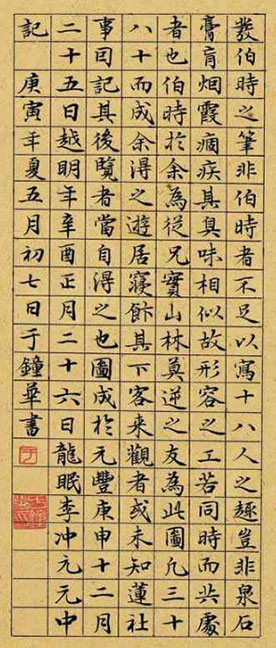 發伯時之筆非伯時者不足以寫十八人之趣豈非泉石
膏肓烟霞痼疾其臭味相似故形容之工若同時而共處
者也伯時於余為從兄實山林莫逆之友為此圖凡三十
八十而成余得之遊居寢飰其下客來觀者或未知蓮社
事囙記其後覽者當自得之也圖成於元豐庚申十二月
二十五日越明年辛酉正月二十六日龍眠李冲元元中
記 庚寅年夏五月初七日于鐘華書
于